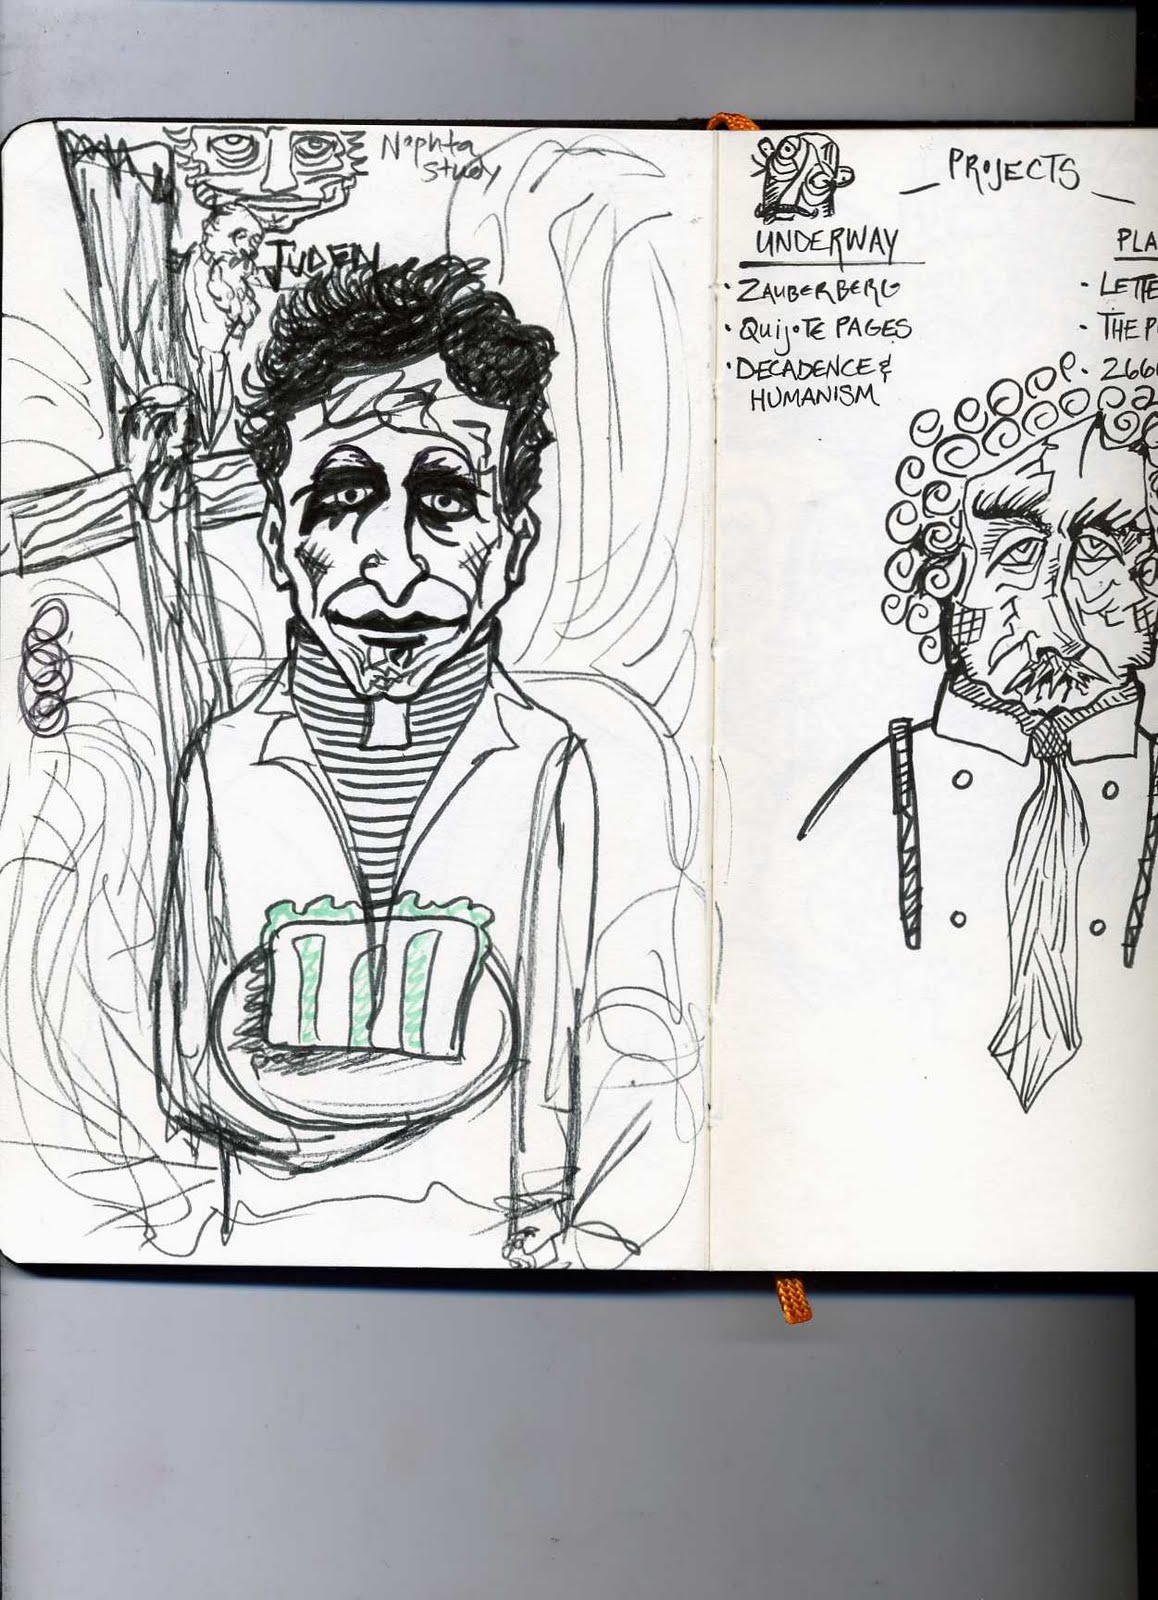 Naphta
Study
JUDEN
PROJECTS
UNDERWAY
• ZAUBERBERG
• QuijoTE PAGES
• DECADENCE &
HUMANISM
PLA
• LETTE
• THE P
• 266